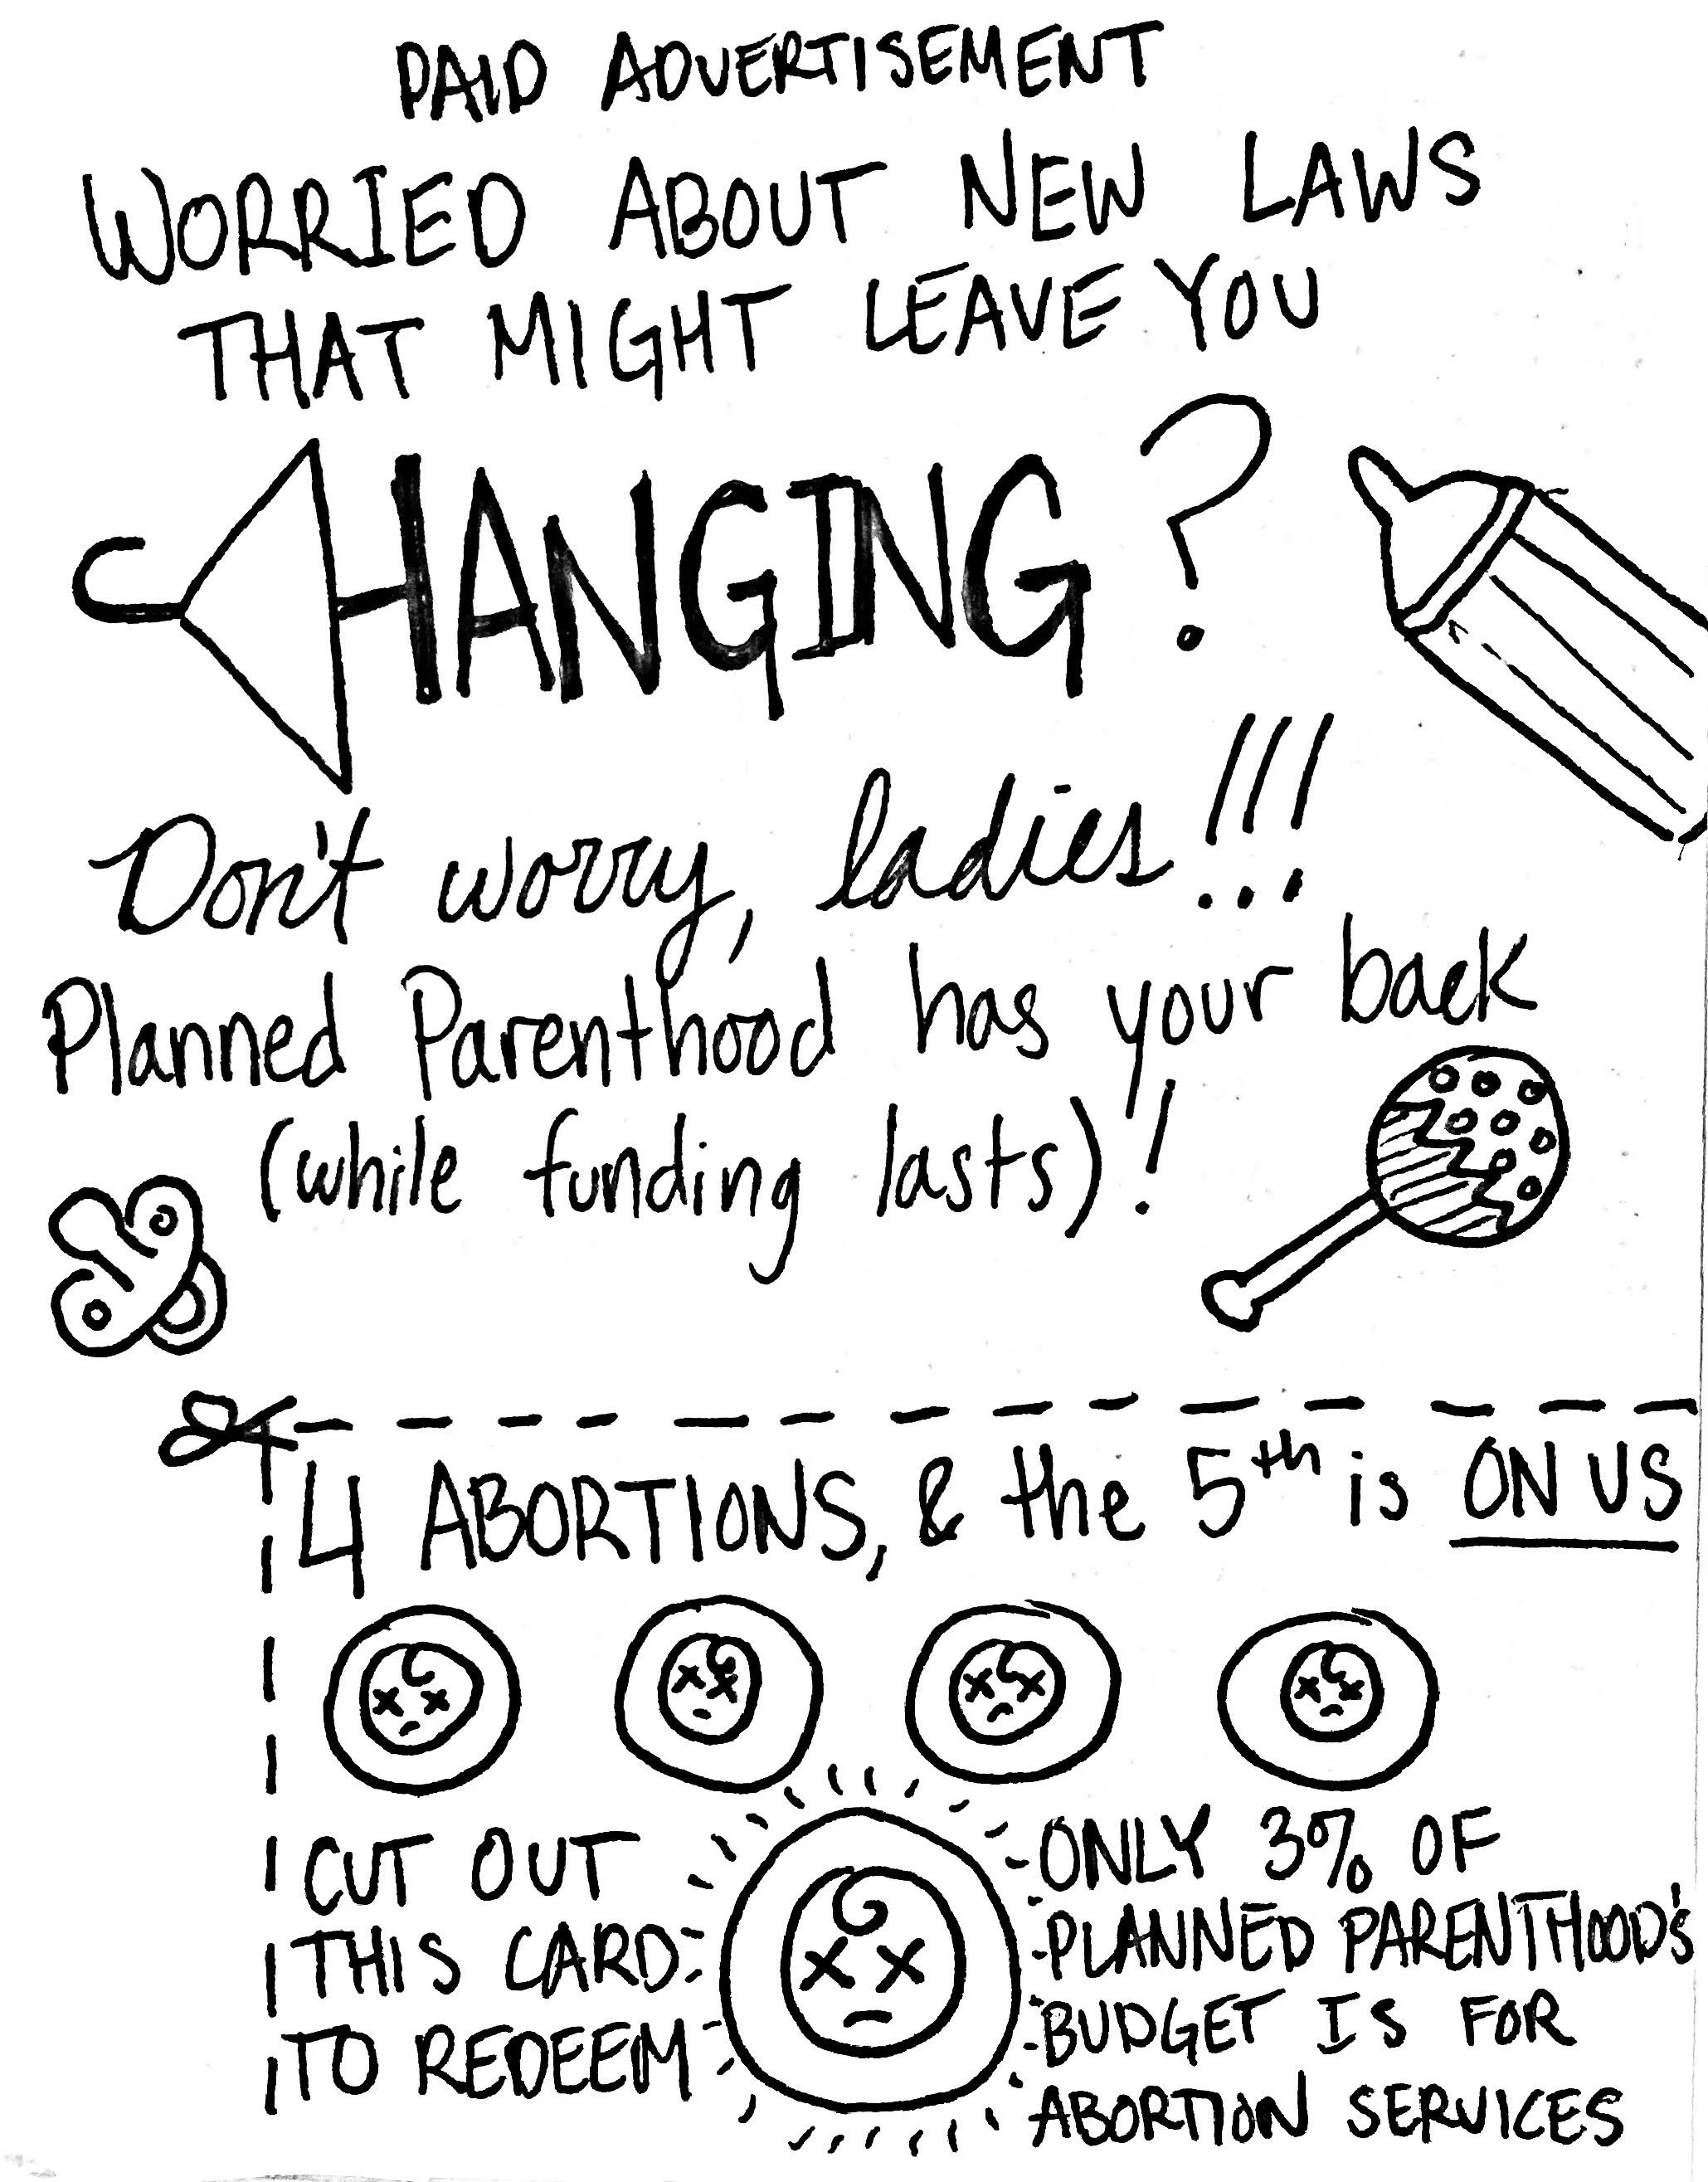 PAID ADVERTISEMENT
WORRIED ABOUT NEW LAWS
THAT MIGHT LEAVE YOU
HANGING?
Don't worry, ladies!!!
Planned Parenthood has your back
(while funding lasts)!
4 ABORTIONS, & the 5th is ON US
CUT OUT
THIS CARD
TO REDEEM
ONLY 3% OF
PLANNED PARENTHOOD'S
BUDGET IS FOR
ABORTION SERVICES